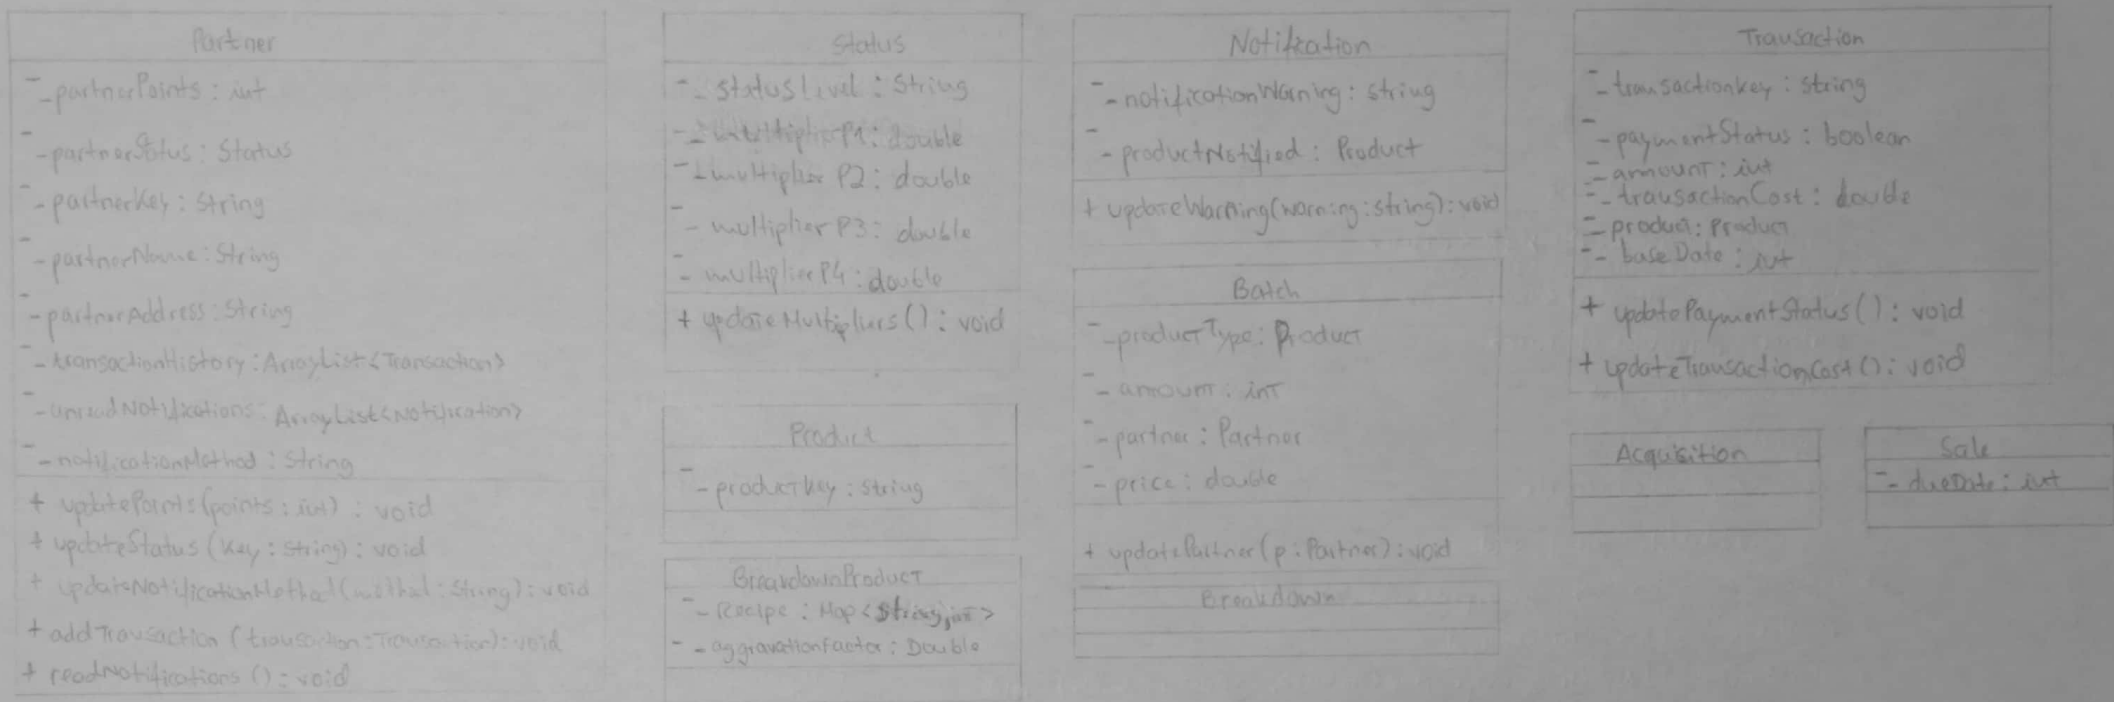 Partner
- - partnerPoints : int
- - partnerStatus : Status
- - partnerKey : String
- - partnerName : String
- - partnerAddress : String
- - transactionHistory : ArrayList<Transaction>
- - unreadNotifications : ArrayList<Notification>
- - notificationMethod : String
+ updatePoints (points : int) : void
+ updateStatus (key : String) : void
+ updateNotificationMethod (method : String) : void
+ addTransaction (transaction : Transaction) : void
+ readNotifications () : void
Status
- - statusLevel : String
- - multiplierP1 : double
- - multiplierP2 : double
- - multiplierP3 : double
- - multiplierP4 : double
+ updateMultipliers () : void
Product
- - productKey : String
BreakdownProduct
- - Recipe : Map<String, int>
- - aggravationFactor : Double
Notification
- - notificationWarning : String
- - productNotified : Product
+ updateWarning (warning : string) : void
Batch
- - productType : Product
- - amount : int
- - partner : Partner
- - price : double
+ updatePartner (p : Partner) : void
Breakdown
Transaction
- - transactionKey : String
- - paymentStatus : boolean
- - amount : int
- - transactionCost : double
- - product : Product
- - baseDate : int
+ updatePaymentStatus () : void
+ updateTransactionCost () : void
Acquisition
Sale
- - dueDate : int